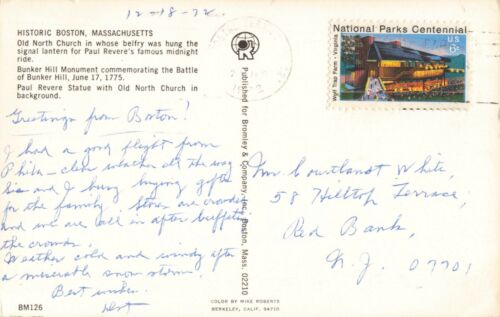 12-18-72
HISTORIC BOSTON, MASSACHUSETTS
Old North Church in whose belfry was hung the
signal lantern for Paul Revere's famous midnight
ride.
Bunker Hill Monument commemorating the Battle
of Bunker Hill, June 17, 1775.
Paul Revere Statue with Old North Church in
background.
Greetings from Boston!
I had a good flight from
Phila - clear weather all the way
Sis and I busy buying gifts
for the family. Stores are crowded
and we are all in after buffeting
the crowds.
Weather cold and windy after
a miserable snow storm.
Best wishes.
BM126
Published for Bromley & Company, Inc., Boston, Mass. 02210
COLOR BY MIKE ROBERTS
BERKELEY, CALIF. 94710
National Parks Centennial
US
6c
Wolf Trap Farm - Virginia
Mr Courtlandt White,
58 Hilltop Terrace,
Red Bank,
N.J. 07701